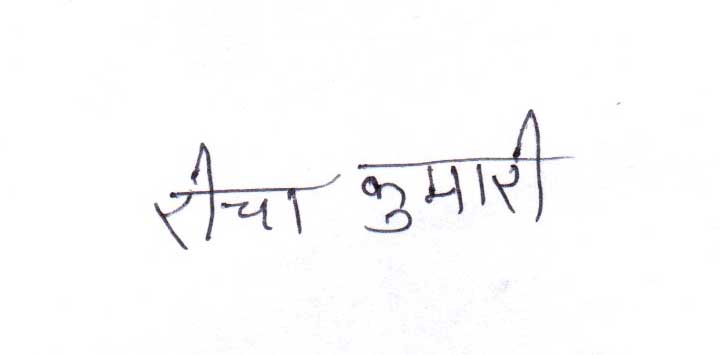 रीचा कुमारी